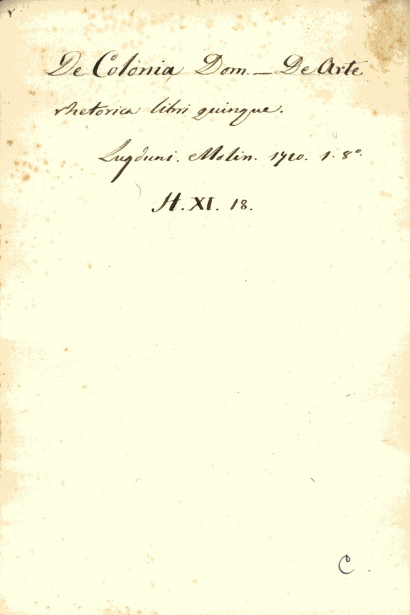 De Colonia Dom. — De Arte
rhetorica libri quinque.
Lugduni. Molin. 1710. 1. 8º.
H. XI. 18.
C.